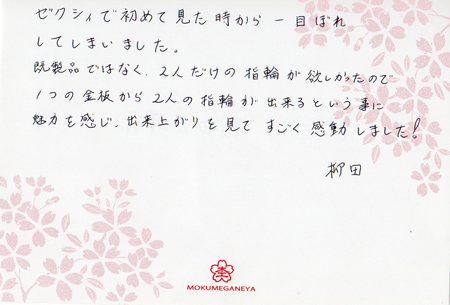 ゼクシィで初めて見た時から一目ぼれ
してしまいました。
既製品ではなく、2人だけの指輪が欲しかったので
1つの金板から2人の指輪が出来るという事に
魅力を感じ、出来上がりを見てすごく感動しました!
柳田
MOKUMEGANEYA